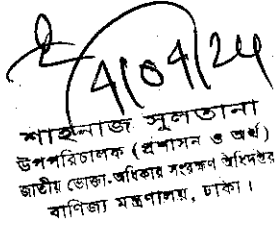 4/04/24
শাহনাজ সুলতানা
উপপরিচালক (প্রশাসন ও অর্থ)
জাতীয় ভোক্তা-অধিকার সংরক্ষণ অধিদপ্তর
বাণিজ্য মন্ত্রণালয়, ঢাকা।